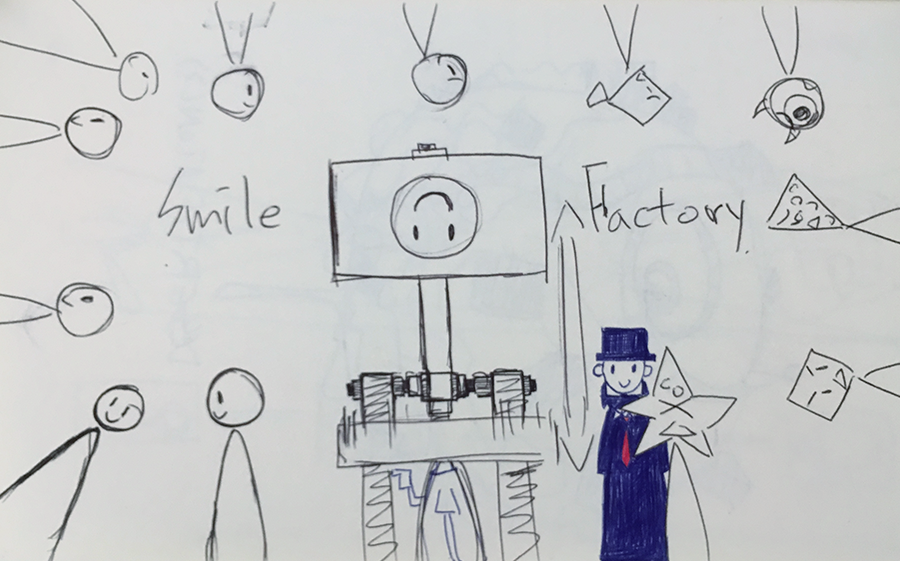 Smile Factory